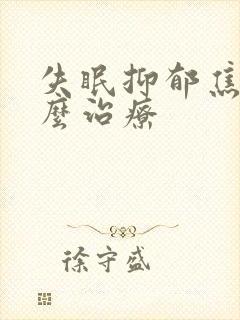 失眠抑郁焦
麼治療
徐守盛